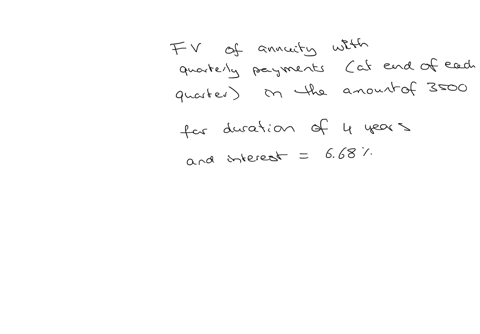 FV of annuity with
quarterly payments (at end of each
quarter) in the amount of 3500
for duration of 4 years
and interest = 6.68%